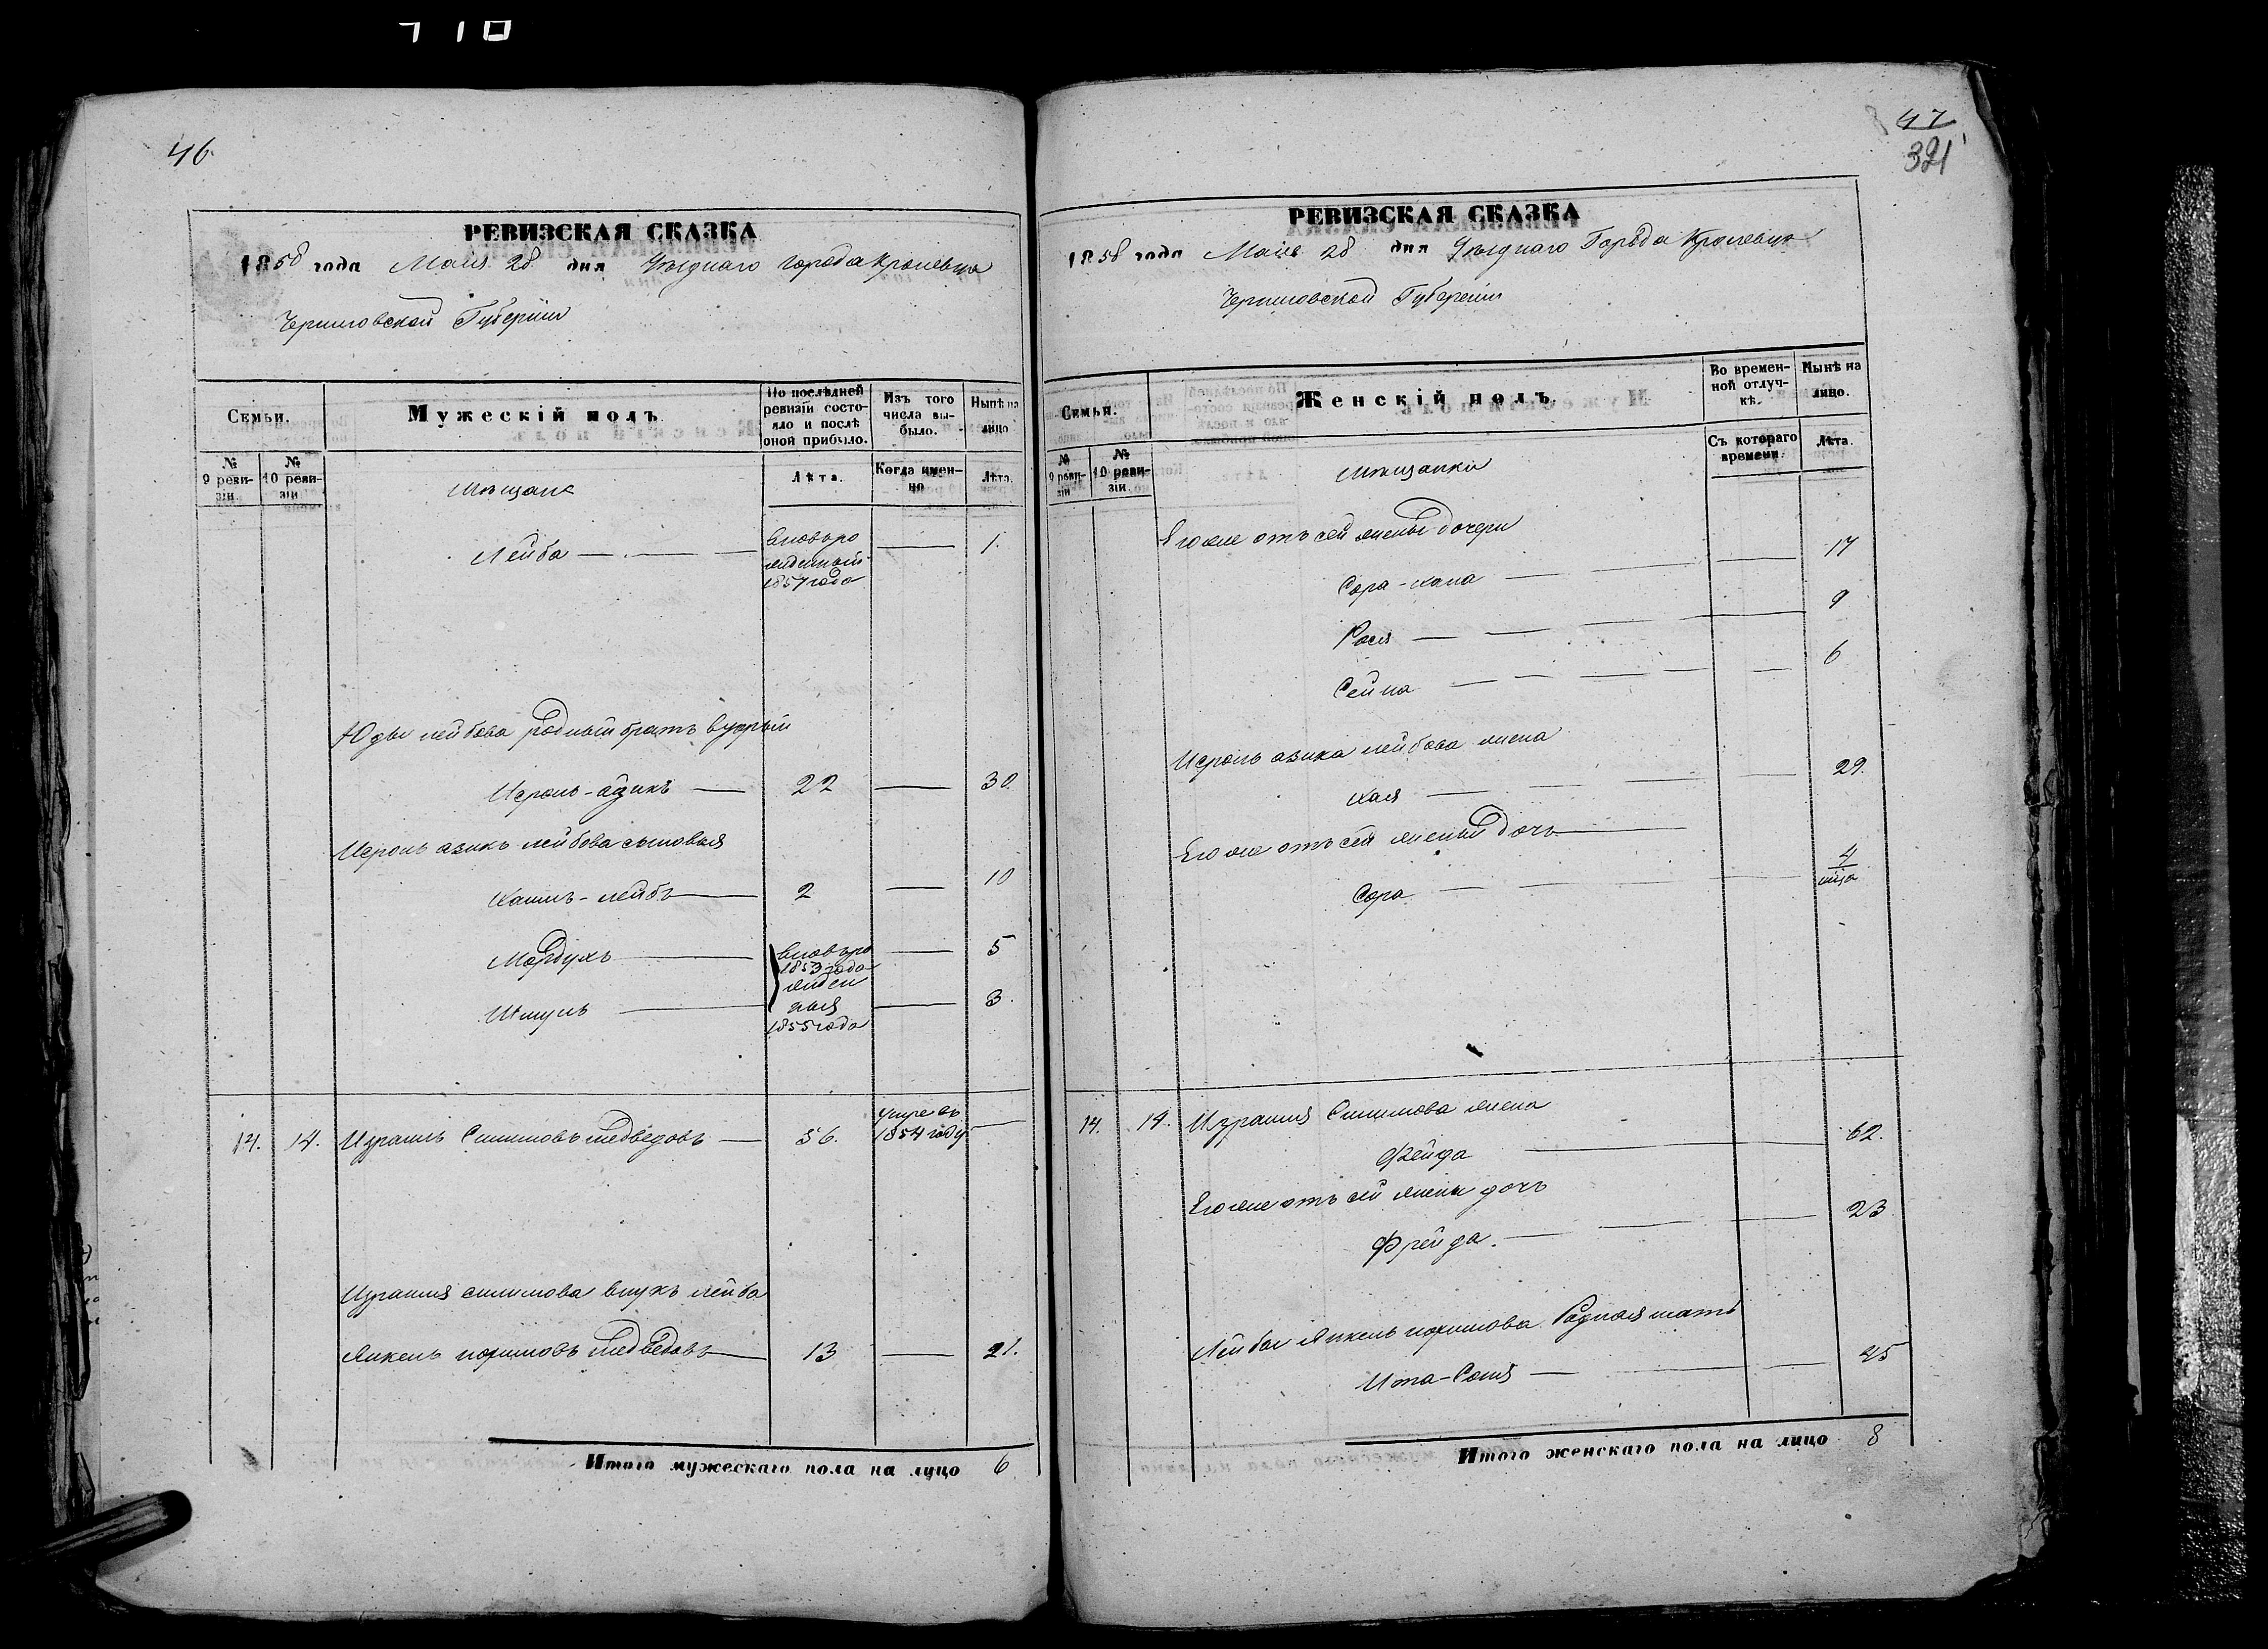 710
46
РЕВИЗСКАЯ СКАЗКА
1858 года Мaiя 28 дня Уѣзднаго города Кролевца
Черниговской Губерніи
Семьи.
Мужескій полъ.
По послѣдней ревизіи состояло и послѣ оной прибыло.
Изъ того числа выбыло.
Нынѣ на лицо
№ 9 ревизіи.
№ 10 ревизіи
Мѣщане
Лѣта.
Когда именно
Лѣта.
Лейба — вновьро жденный 1857 года — 1.
Юды лейбова родный братъ вторый
Исроль-азикъ — 22 — 30.
Исроль азикъ лейбова сыновья
Хаимъ-лейбъ — 2 — 10
Мордухъ — вновьро 1853 года — 5
Шмуль — жден ныя 1855 года — 3.
14. 14. Израиль Симимовъ медведовъ — 56. умре въ 1854 году —
Израиля симимова внукъ лейба
Янкель хоримовъ медведовъ — 13 — 21.
Итого мужескаго пола на лицо 6
47
321
РЕВИЗСКАЯ СКАЗКА
1858 года Маiя 28 дня Уѣзднаго Города Кролевца
Черниговской Губерніи
Семьи.
Женскій полъ.
Во временной отлучкѣ.
Нынѣ на лицо.
№ 9 ревизіи
№ 10 ревизіи.
Мѣщанки
Съ котораго времени.
Лѣта.
Его же отъ сей жены дочери
Сора-хана — 17
Рося — 9
Сейна — 6
Исроль азика лейбова жена
Хая — 29.
Его же отъ сей жены дочь
Сора — 4 мца
14. 14. Израиля Симимова жена
Фейда — 62.
Его же отъ сей жены дочь
Фрейда. — 23
Лейбы Янкель хоримова Родная мать
Ита-Соня — 45
Итого женскаго пола на лицо 8